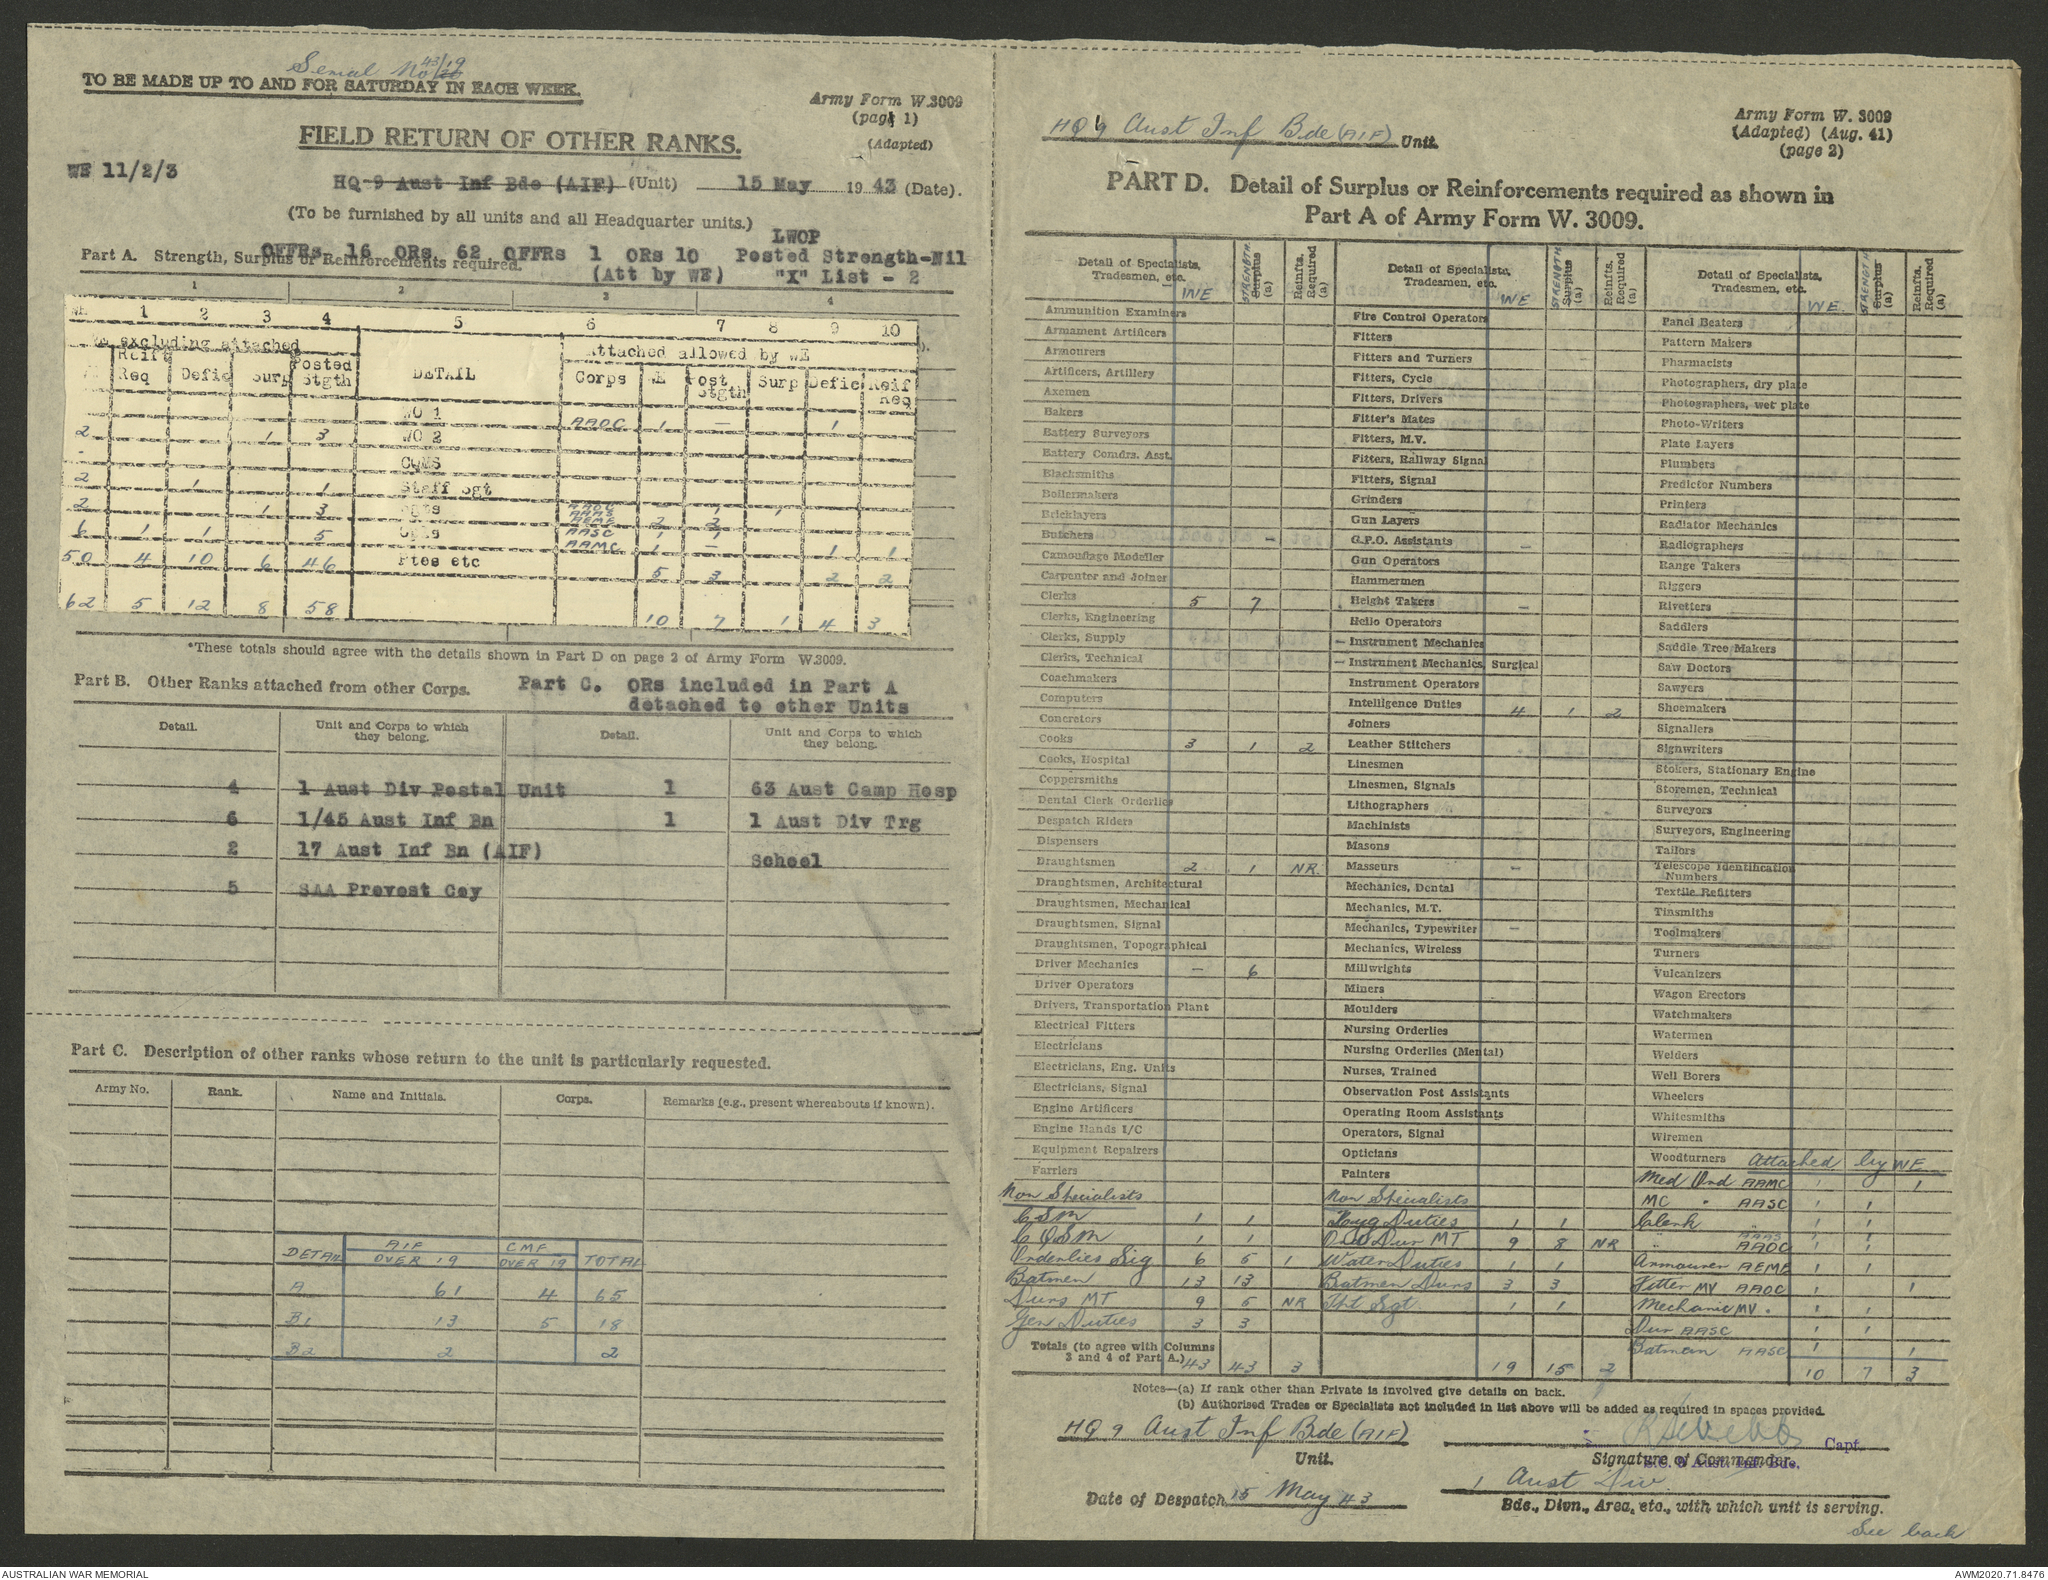 Serial No 43/19
TO BE MADE UP TO AND FOR SATURDAY IN EACH WEEK.
Army Form W.3009
(page 1)
(Adapted)
FIELD RETURN OF OTHER RANKS.
WE 11/2/3
HQ 9 Aust Inf Bde (AIF) (Unit) 15 May 1943 (Date).
(To be furnished by all units and all Headquarter units.)
LWOP
OFFRs 16 ORs 62 OFFRs 1 ORs 10 Posted Strength-Nil
Part A. Strength, Surplus or Reinforcements required.
(Att by WE) "X" List - 2
1 2 3 4
WE 1 2 3 4 5 6 7 8 9 10
excluding attached
Attached allowed by WE
Reift Req Defic Surp Posted Stgth DETAIL Corps E Post Stgth Surp Defic Reif Req
WO 1 AAOC 1 - 1
2 1 3 WO 2
CQMS
2 1 1 Staff Sgt
2 1 3 Sgts AAOC AAAS - 1 1
AEME 2 2
6 1 1 5 Cpls AASC 1 1
AAMC 1 - 1 1
50 4 10 6 46 Ptes etc 5 3 2 2
62 5 12 8 58 10 7 1 4 3
*These totals should agree with the details shown in Part D on page 2 of Army Form W.3009.
Part B. Other Ranks attached from other Corps.
Part C. ORs included in Part A
detached to other Units
Detail. Unit and Corps to which they belong. Detail. Unit and Corps to which they belong.
4 1 Aust Div Postal Unit 1 63 Aust Camp Hosp
6 1/45 Aust Inf Bn 1 1 Aust Div Trg
2 17 Aust Inf Bn (AIF) School
5 SAA Provost Coy
Part C. Description of other ranks whose return to the unit is particularly requested.
Army No. Rank. Name and Initials. Corps. Remarks (e.g., present whereabouts if known).
DETAIL AIF OVER 19 CMF OVER 19 TOTAL
A 61 4 65
B1 13 5 18
B2 2 2
HQ 9 Aust Inf Bde (AIF) Unit.
Army Form W. 3009
(Adapted) (Aug. 41)
(page 2)
PART D. Detail of Surplus or Reinforcements required as shown in
Part A of Army Form W. 3009.
Detail of Specialists, Tradesmen, etc. WE STRENGTH Surplus (a) Reinfts. Required (a)
Ammunition Examiners
Armament Artificers
Armourers
Artificers, Artillery
Axemen
Bakers
Battery Surveyors
Battery Comdrs. Asst.
Blacksmiths
Boilermakers
Bricklayers
Butchers -
Camouflage Modeller
Carpenter and Joiner
Clerks 5 7
Clerks, Engineering
Clerks, Supply
Clerks, Technical
Coachmakers
Computers
Concretors
Cooks 3 1 2
Cooks, Hospital
Coppersmiths
Dental Clerk Orderlies
Despatch Riders
Dispensers
Draughtsmen 2 1 NR
Draughtsmen, Architectural
Draughtsmen, Mechanical
Draughtsmen, Signal
Draughtsmen, Topographical
Driver Mechanics - 6
Driver Operators
Drivers, Transportation Plant
Electrical Fitters
Electricians
Electricians, Eng. Units
Electricians, Signal
Engine Artificers
Engine Hands I/C
Equipment Repairers
Farriers
Non Specialists
CSM 1 1
CQSM 1 1
Orderlies Sig 6 5 1
Batmen 13 13
Dvrs MT 9 5 NR
Gen Duties 3 3
Totals (to agree with Columns 3 and 4 of Part A.) 43 43 3
Detail of Specialists, Tradesmen, etc. WE STRENGTH Surplus (a) Reinfts. Required (a)
Fire Control Operators
Fitters
Fitters and Turners -
Fitters, Cycle
Fitters, Drivers
Fitter's Mates
Fitters, M.V.
Fitters, Railway Signal
Fitters, Signal
Grinders
Gun Layers
G.P.O. Assistants -
Gun Operators
Hammermen
Height Takers -
Hello Operators
- Instrument Mechanics
- Instrument Mechanics, Surgical
Instrument Operators
Intelligence Duties 4 1 2
Joiners
Leather Stitchers
Linesmen
Linesmen, Signals
Lithographers
Machinists
Masons
Masseurs -
Mechanics, Dental
Mechanics, M.T.
Mechanics, Typewriter -
Mechanics, Wireless
Millwrights
Miners
Moulders
Nursing Orderlies
Nursing Orderlies (Mental)
Nurses, Trained
Observation Post Assistants
Operating Room Assistants
Operators, Signal
Opticians
Painters
Non Specialists
Hyg Duties 1 1
Ord Dvr MT 9 8 NR
Water Duties 1 1
Batmen Dvrs 3 3
Tpt Sgt 1 1
19 15 2
Detail of Specialists, Tradesmen, etc. WE STRENGTH Surplus (a) Reinfts. Required (a)
Panel Beaters
Pattern Makers
Pharmacists
Photographers, dry plate
Photographers, wet plate
Photo-Writers
Plate Layers
Plumbers
Predictor Numbers
Printers
Radiator Mechanics
Radiographers
Range Takers
Riggers
Rivetters
Saddlers
Saddle Tree Makers
Saw Doctors
Sawyers
Shoemakers
Signallers
Signwriters
Stokers, Stationary Engine
Storemen, Technical
Surveyors
Surveyors, Engineering
Tailors
Telescope Identification Numbers
Textile Refitters
Tinsmiths
Toolmakers
Turners
Vulcanizers
Wagon Erectors
Watchmakers
Watermen
Welders
Well Borers
Wheelers
Whitesmiths
Wiremen
Woodturners Attached by WE
Med Ord AAMC 1 1
MC " AASC 1 1
Clerk " 1 1
" AAAS AAOC 1 1
Armourer AEME 1 1
Fitter MV AAOC 1 1
Mechanic MV " 1 1
Dvr AASC 1 1
Batman AASC 1 1
10 7 3
Notes—(a) If rank other than Private is involved give details on back.
(b) Authorised Trades or Specialists not included in list above will be added as required in spaces provided.
HQ 9 Aust Inf Bde (AIF)
Unit.
Capt.
Signature of Commander.
S.C. 9 Aust. Inf. Bde.
Date of Despatch 15 May 43
1 Aust Div
Bde., Divn., Area, etc., with which unit is serving.
See back
AUSTRALIAN WAR MEMORIAL
AWM2020.71.8476